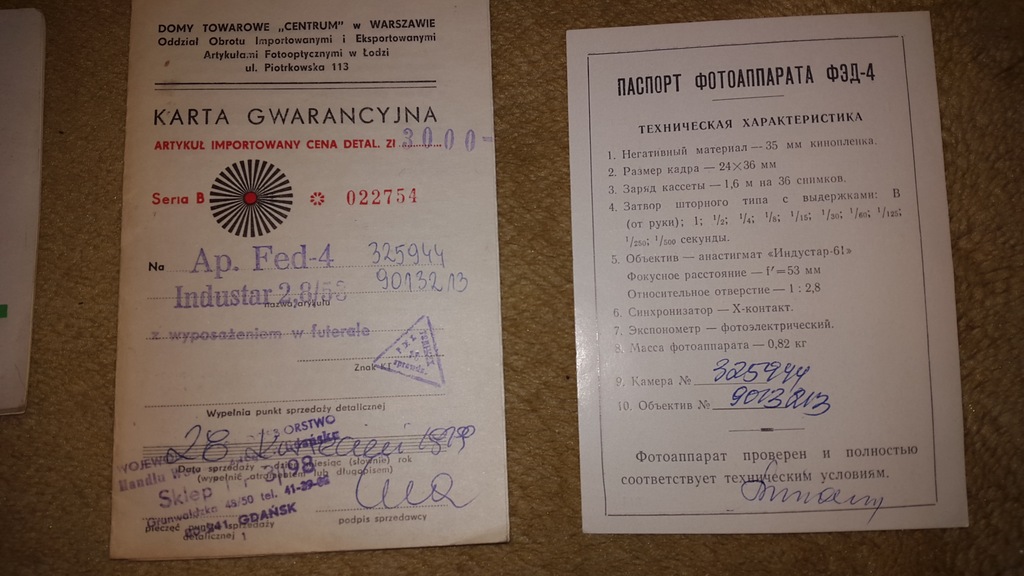 DOMY TOWAROWE „CENTRUM" w WARSZAWIE
Oddział Obrotu Importowanymi i Eksportowanymi
Artykułami Fotooptycznymi w Łodzi
ul. Piotrkowska 113
KARTA GWARANCYJNA
ARTYKUŁ IMPORTOWANY CENA DETAL. Zł 3000-
Seria B 022754
Na Ap. Fed-4 325944
Industar 2,8/53 9013213
z wyposażeniem w futerale
Znak KT
Wypełnia punkt sprzedaży detalicznej
28
Data sprzedaży - dzień, miesiąc (słownie) rok
(wypełnić atramentem lub długopisem)
Sklep 98
Grunwaldzka 48/50 tel.
GDAŃSK
pieczęć punktu sprzedaży
detalicznej 1
podpis sprzedawcy
ПАСПОРТ ФОТОАППАРАТА ФЭД-4
ТЕХНИЧЕСКАЯ ХАРАКТЕРИСТИКА
1. Негативный материал — 35 мм кинопленка.
2. Размер кадра — 24×36 мм
3. Заряд кассеты — 1,6 м на 36 снимков.
4. Затвор шторного типа с выдержками: В
(от руки); 1; 1/2; 1/4; 1/8; 1/15; 1/30; 1/60; 1/125;
1/250; 1/500 секунды.
5. Объектив — анастигмат «Индустар-61»
Фокусное расстояние — f′=53 мм
Относительное отверстие — 1 : 2,8
6. Синхронизатор — Х-контакт.
7. Экспонометр — фотоэлектрический.
8. Масса фотоаппарата — 0,82 кг
9. Камера № 325944
10. Объектив № 9013213
Фотоаппарат проверен и полностью
соответствует техническим условиям.